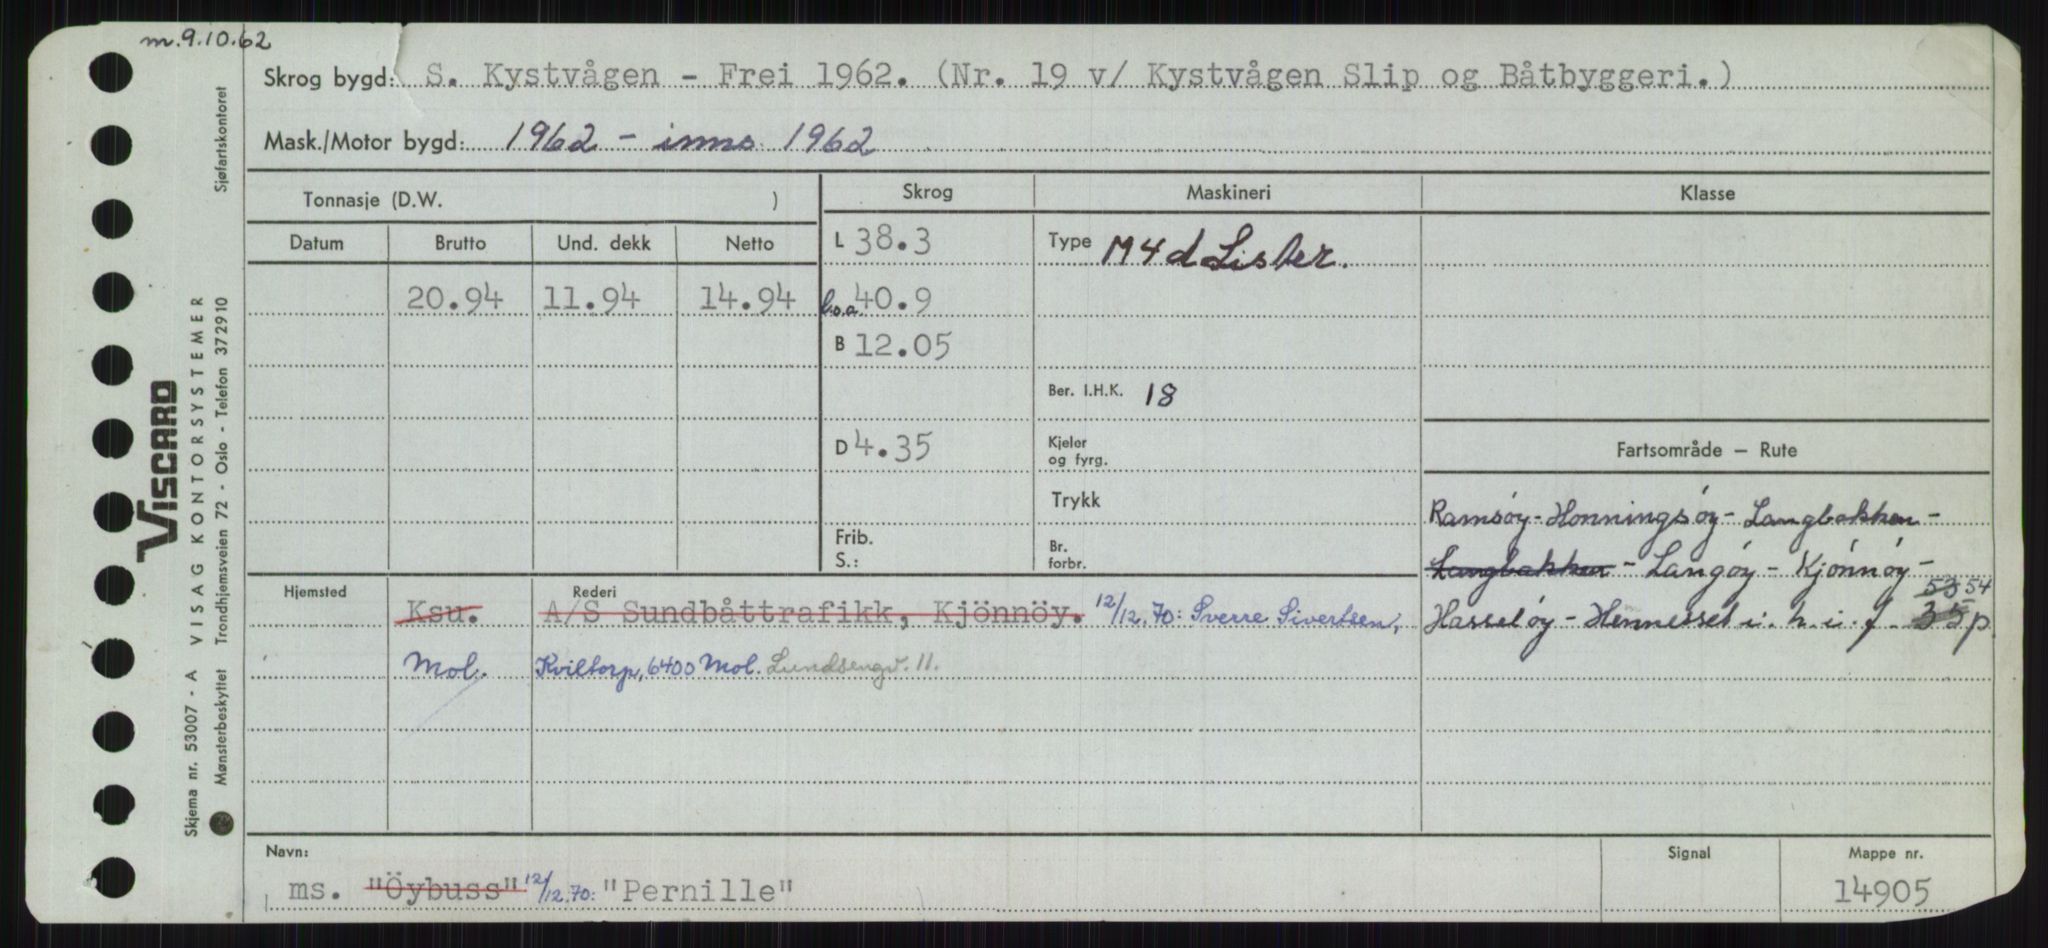 m. 9.10.62
Skrog bygd: S. Kystvågen - Frei 1962. (Nr. 19 v/ Kystvågen Slip og Båtbyggeri.)
Mask./Motor bygd: 1962 - inns. 1962
Tonnasje (D.W. )
Skrog
Maskineri
Klasse
Datum
Brutto
Und. dekk
Netto
L 38.3
Type M4d Lister.
20.94
11.94
14.94
l.o.a. 40.9
B 12.05
Ber. I.H.K. 18
D 4.35
Kjeler
og fyrg.
Trykk
Frib.
S.:
Br.
forbr.
Fartsområde – Rute
Ramsöy - Honningsöy - Langbakken -
Langbakken - Langöy - Kjönnöy -
53 54
Hasseløy - Hennesset i. h. i. f. 35 p.
Hjemsted
Rederi
Ksu.
A/S Sundbåttrafikk, Kjönnöy. 12/12.70: Sverre Sivertsen,
Mol.
Kviltorp, 6400 Mol. Lundsengv. 11.
Navn:
ms. "Öybuss" 12/12.70: "Pernille"
Signal
Mappe nr.
14905
VISCARD
Skjema nr. 53007 - A VISAG KONTORSYSTEMER
Mønsterbeskyttet Trondhjemsveien 72 - Oslo - Telefon 372910 Sjøfartskontoret